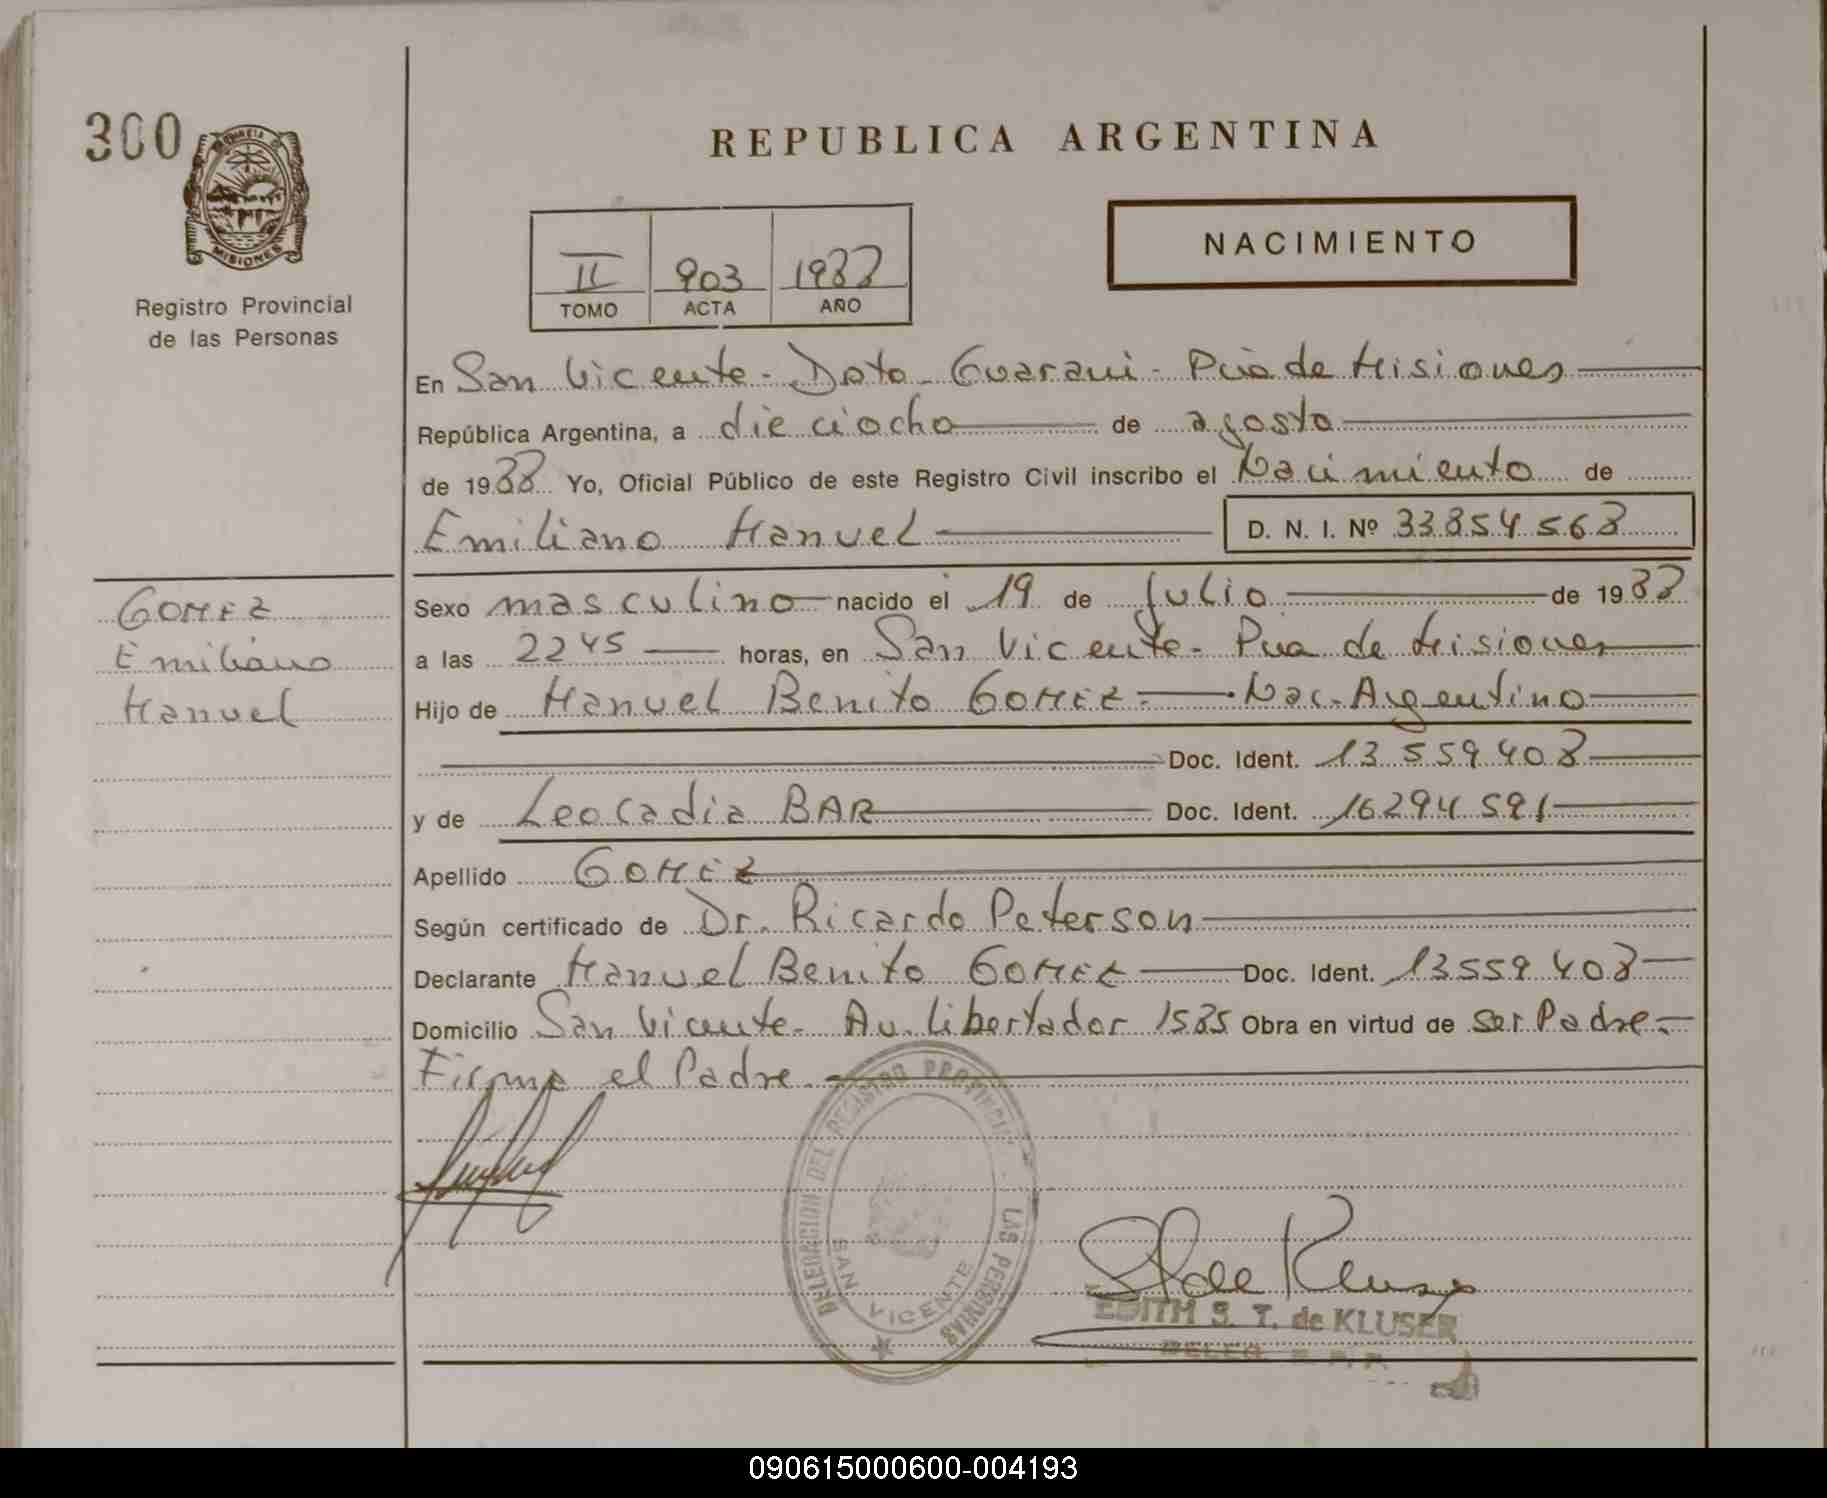 300
PROVINCIA DE
MISIONES
Registro Provincial
de las Personas
REPUBLICA ARGENTINA
II 903 1988
TOMO ACTA AÑO
NACIMIENTO
En San Vicente - Dpto. Guarani - Pcia de Misiones
República Argentina, a dieciocho de agosto
de 1988 Yo, Oficial Público de este Registro Civil inscribo el Nacimiento de
Emiliano Manuel D. N. I. Nº 33.854.568
GOMEZ
Emiliano
Manuel
Sexo masculino nacido el 19 de Julio de 1988
a las 22 45 horas, en San Vicente - Pcia de Misiones
Hijo de Manuel Benito GOMEZ - Nac. Argentino
Doc. Ident. 13.559.408
y de Leocadia BAR Doc. Ident. 16.294.591
Apellido GOMEZ
Según certificado de Dr. Ricardo Peterson
Declarante Manuel Benito GOMEZ Doc. Ident. 13.559.408
Domicilio San Vicente - Av. Libertador 1585 Obra en virtud de ser Padre -
Firma el Padre. -
DELEGACION DEL REGISTRO PROVINCIAL LAS PERSONAS
SAN VICENTE
E T de Kluser
EDITH S. T. de KLUSER
DELEG. R. P. P.
090615000600-004193